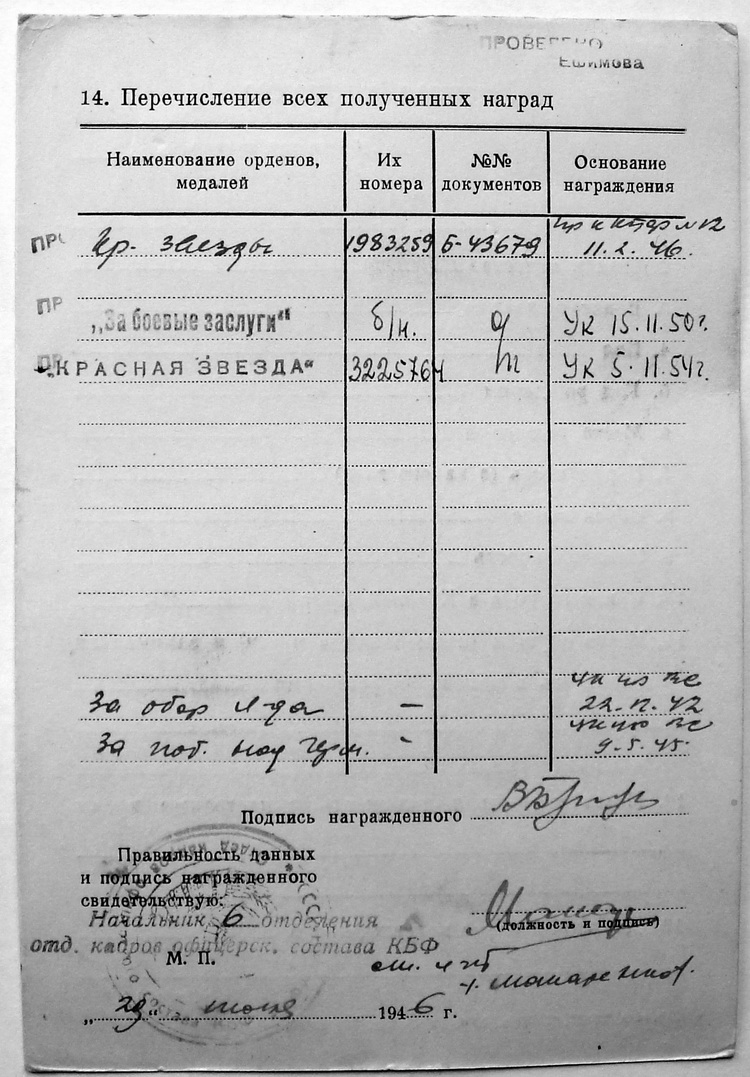 ПРОВЕРЕНО
ЕФИМОВА
14. Перечисление всех полученных наград
Наименование орденов, медалей Их номера №№ документов Основание награждения
ПРО Кр. звезды 1983259 Б-43679 11.2.46.
ПР „За боевые заслуги“ б/н. УК 15.11.50г.
ПР „КРАСНАЯ ЗВЕЗДА“ 3225764 УК 5.11.54г.
За обор Л-да — 22.12.42
За поб. над Герм. - 9.5.45.
Подпись награжденного
Правильность данных
и подпись награжденного
свидетельствую:
Начальник 6 отделения
отд. кадров офицерск. состава КБФ
(должность и подпись)
М. П.
„29“ 1946 г.